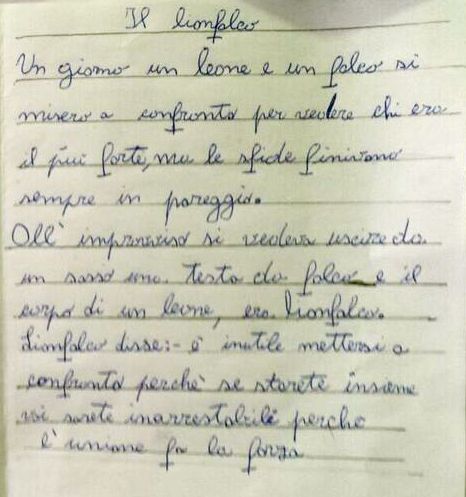 Il lionfalco
Un giorno un leone e un falco si
misero a confronto per vedere chi era
il piú forte, ma le sfide finivano
sempre in pareggio.
All' improvviso si vedeva uscire da
un sasso una testa da falco e il
corpo di un leone, era lionfalco.
Lionfalco disse:- é inutile mettersi a
confronto perchè se starete insieme
voi sarete inarrestabili perche
l'unione fa la forza